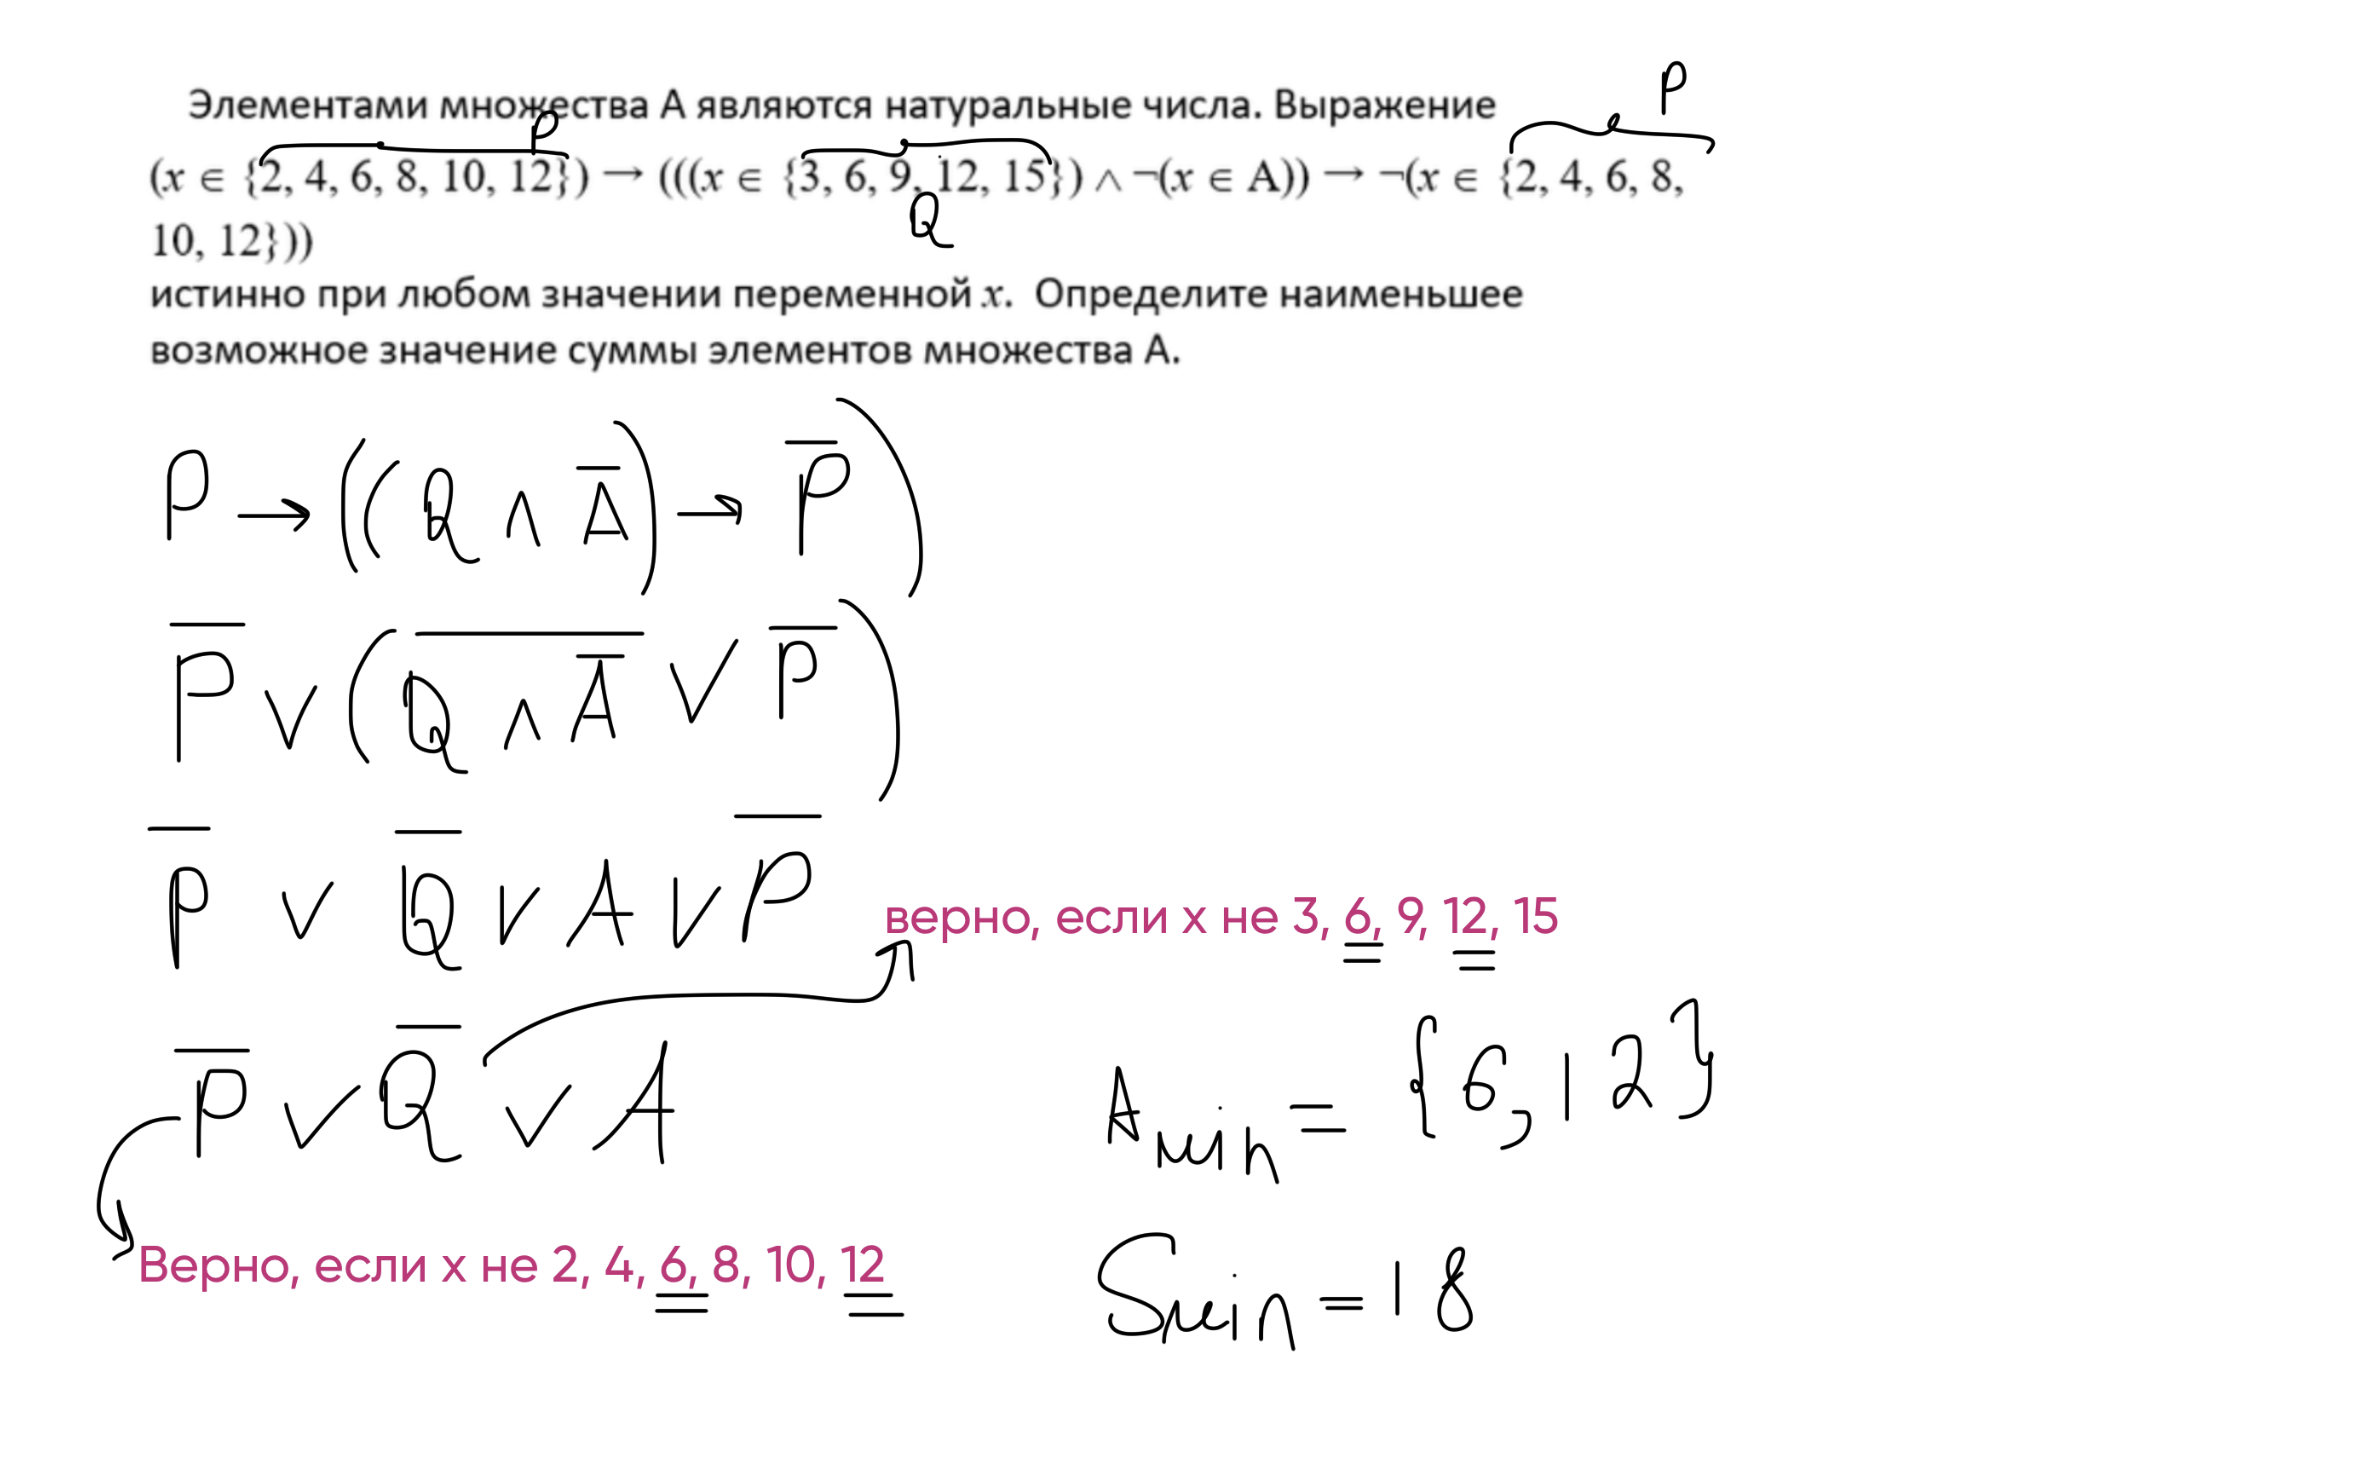 Элементами множества А являются натуральные числа. Выражение
P
P
(x ∈ {2, 4, 6, 8, 10, 12}) → (((x ∈ {3, 6, 9, 12, 15}) ∧ ¬(x ∈ A)) → ¬(x ∈ {2, 4, 6, 8,
Q
10, 12}))
истинно при любом значении переменной x. Определите наименьшее
возможное значение суммы элементов множества А.
P → ((Q ∧ A̅) → P̅)
P̅ ∨ (\overline{Q ∧ A̅} ∨ P̅)
P̅ ∨ Q̅ ∨ A ∨ P̅
верно, если х не 3, 6, 9, 12, 15
P̅ ∨ Q̅ ∨ A
A min = {6, 12}
Верно, если х не 2, 4, 6, 8, 10, 12
S min = 18